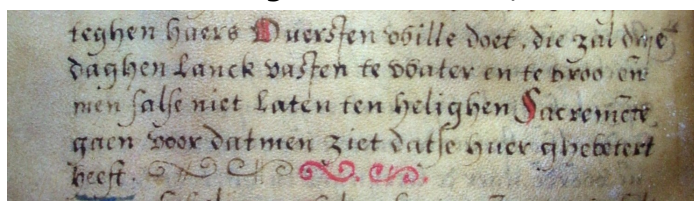 teghen haers Oversten wille doet, die zal drie
daghen Lanck vasten te water en te broo en̄
men salse niet Laten ten helighen Sacremēte
gaen voor datmen ziet datse huer ghebetert
heeft.